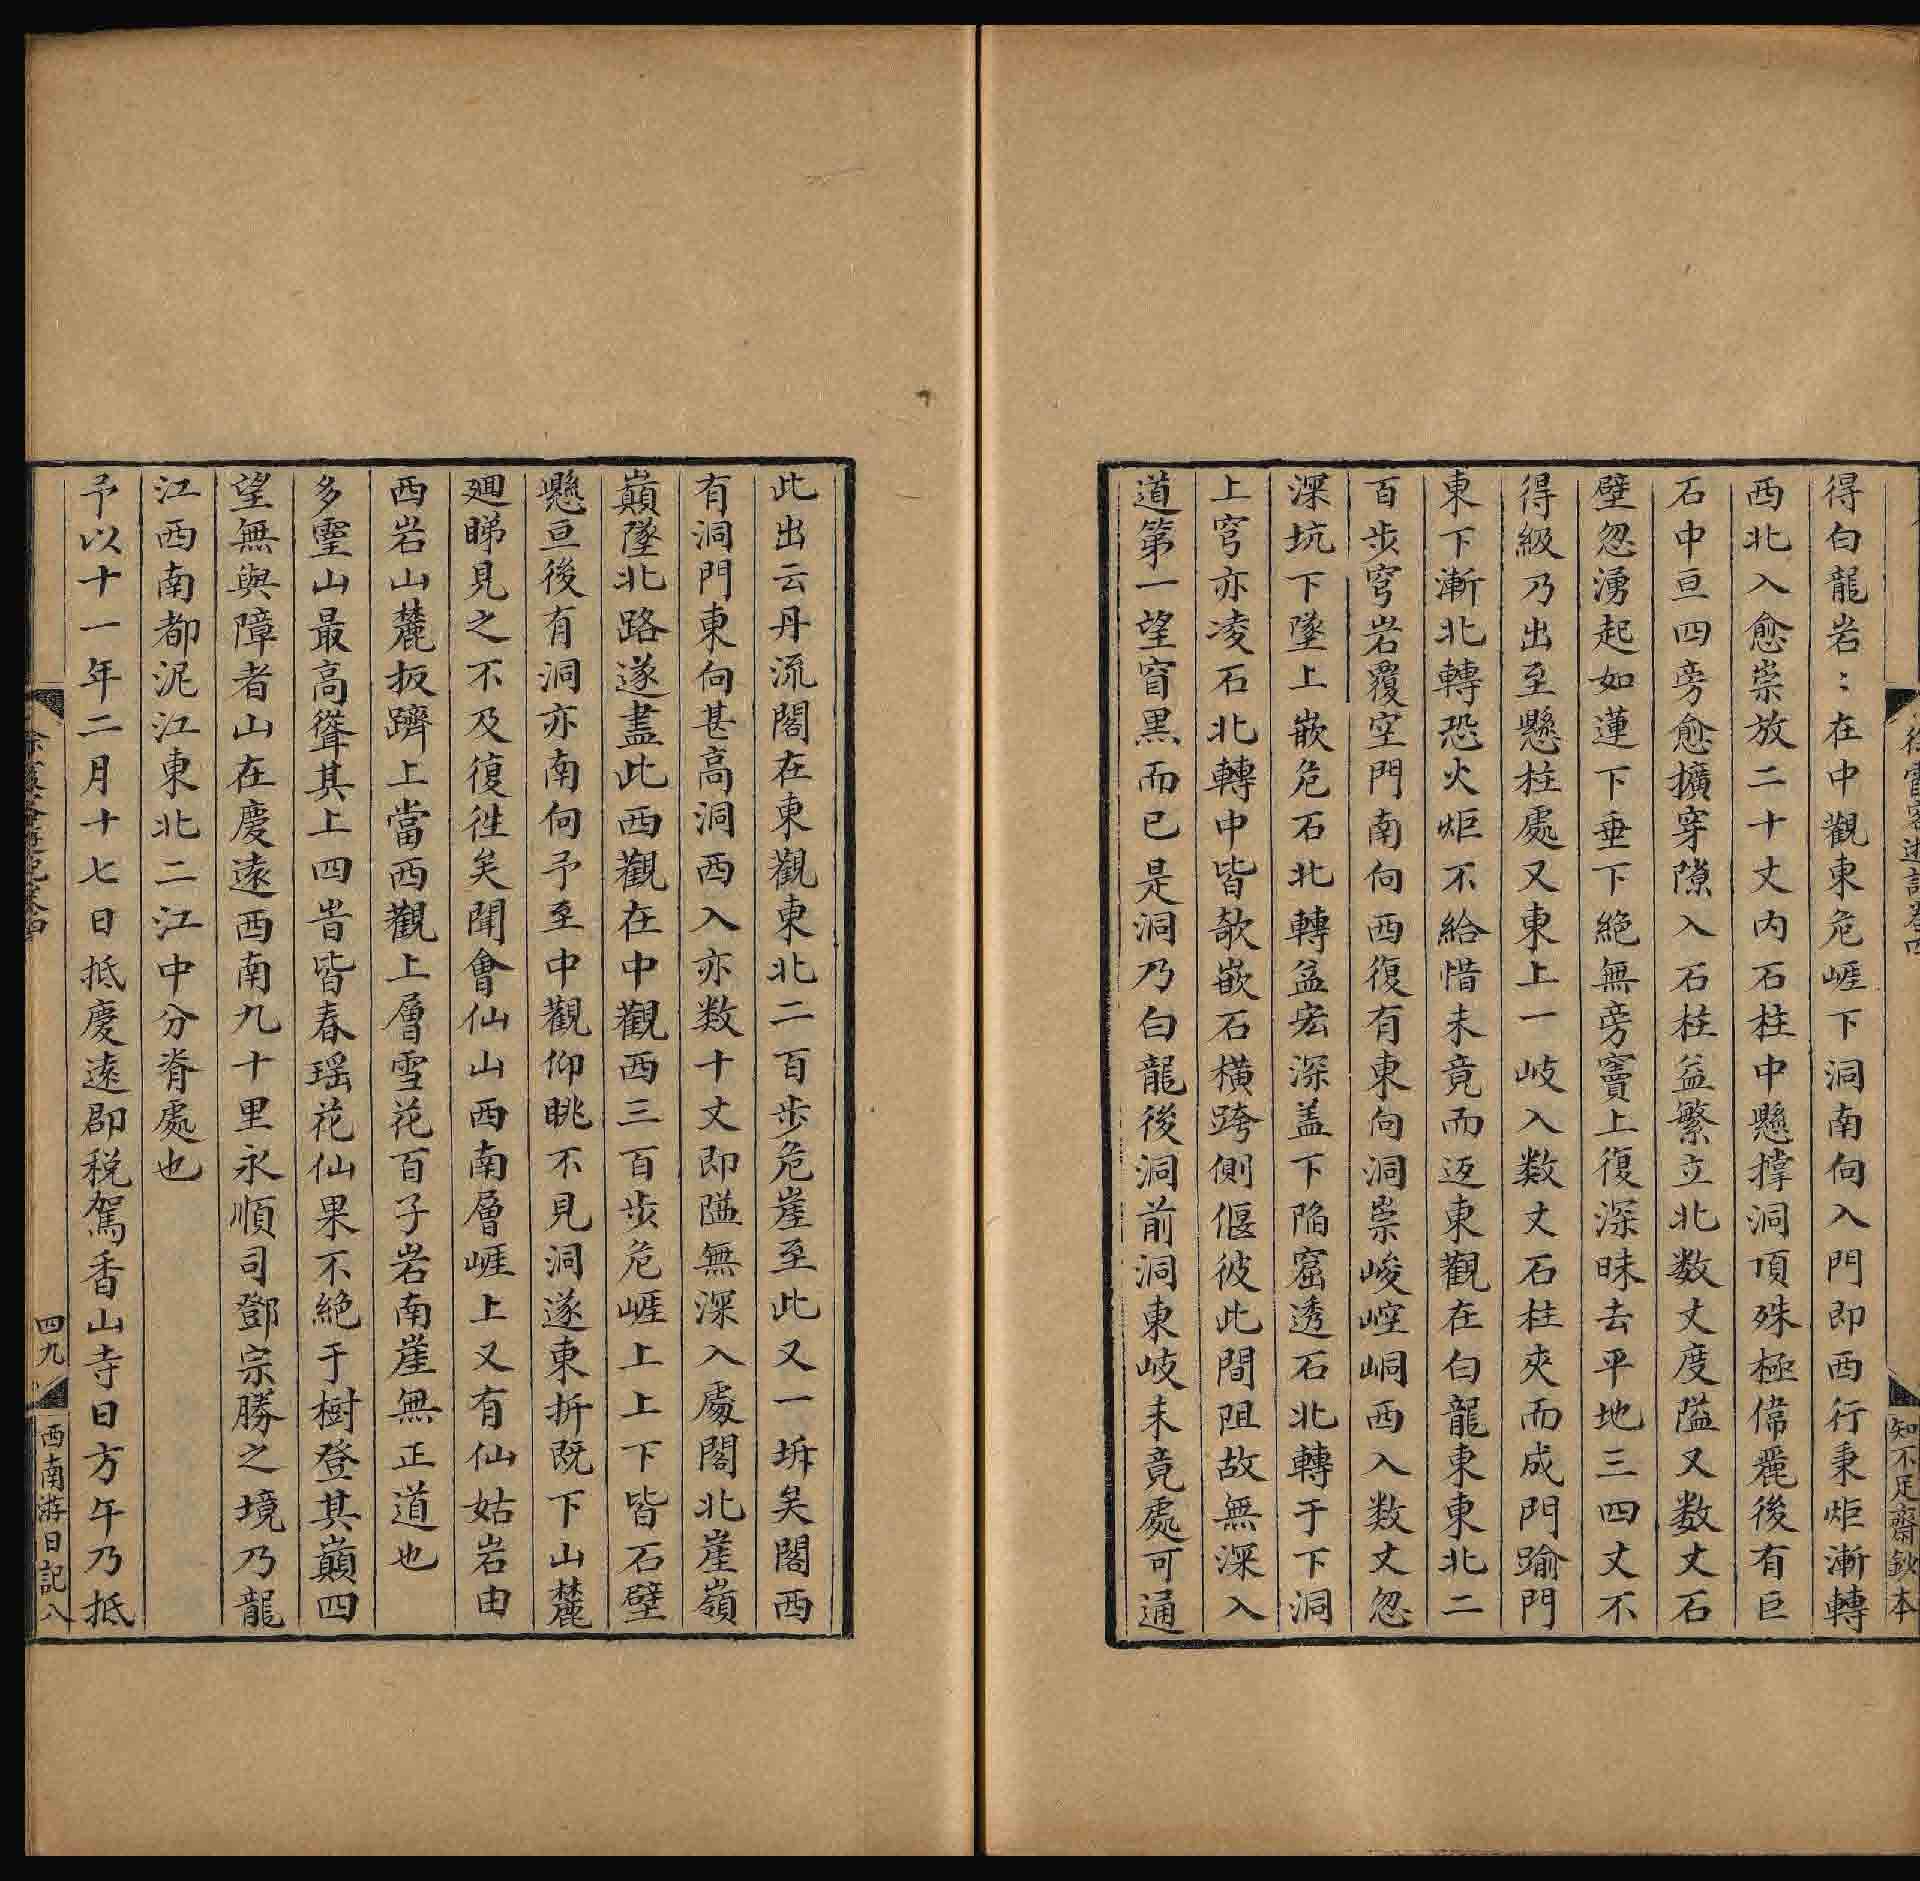 得白龍岩〻在中觀東危崕下洞南向入門即西行秉炬漸轉
西北入愈崇放二十丈内石柱中懸撑洞頂殊極偉麗後有巨
石中亘四旁愈擴穿隙入石柱益繁立北数丈度隘又数丈石
壁忽湧起如蓮下垂下絶無旁竇上復深昧去平地三四丈不
得級乃出至懸柱處又東上一岐入数丈石柱夾而成門踰門
東下漸北轉恐火炬不給惜未竟而返東觀在白龍東東北二
百步穹岩覆空門南向西復有東向洞崇峻崆峒西入数丈忽
深坑下墜上嵌危石北轉益宏深盖下陷窟透石北轉于下洞
上穹亦凌石北轉中皆欹嵌石横跨側偃彼此間阻故無深入
道第一望窅黒而已是洞乃白龍後洞前洞東岐未竟處可通
知不足齋鈔本
此出云丹流閣在東觀東北二百步危崖至此又一坼矣閣西
有洞門東向甚高洞西入亦数十丈即隘無深入處閣北崖嶺
巔墜北路遂盡此西觀在中觀西三百步危崕上上下皆石壁
懸亘後有洞亦南向予至中觀仰眺不見洞遂東折既下山麓
廻睇見之不及復徃矣聞會仙山西南層崕上又有仙姑岩由
西岩山麓扳躋上當西觀上層雪花百子岩南崖無正道也
多靈山最高聳其上四旹皆春瑶花仙果不絶于樹登其巔四
望無與障者山在慶遠西南九十里永順司鄧宗勝之境乃龍
江西南都泥江東北二江中分脊處也
予以十一年二月十七日抵慶遠郡稅駕香山寺日方午乃抵
四九
西南游日記八